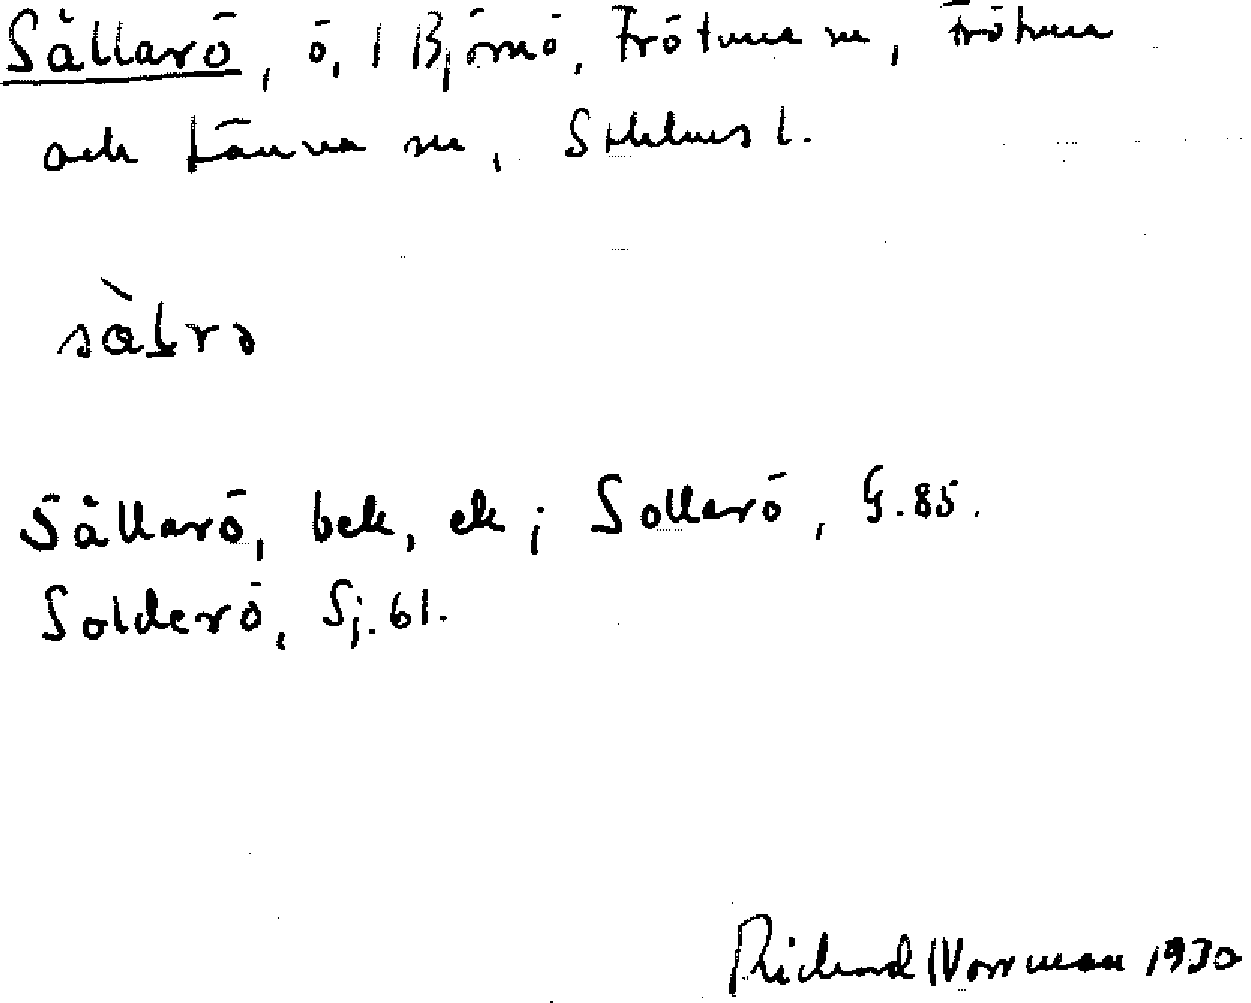 Sållarö, ö, i Björnö, Frötuna sn, Frötuna
och Länna sn, Sthlms l.
sàlrə
Sållarö, bek, ek; Sollerö, G.85.
Solderö, Sj.61.
Richard Norrman 1930